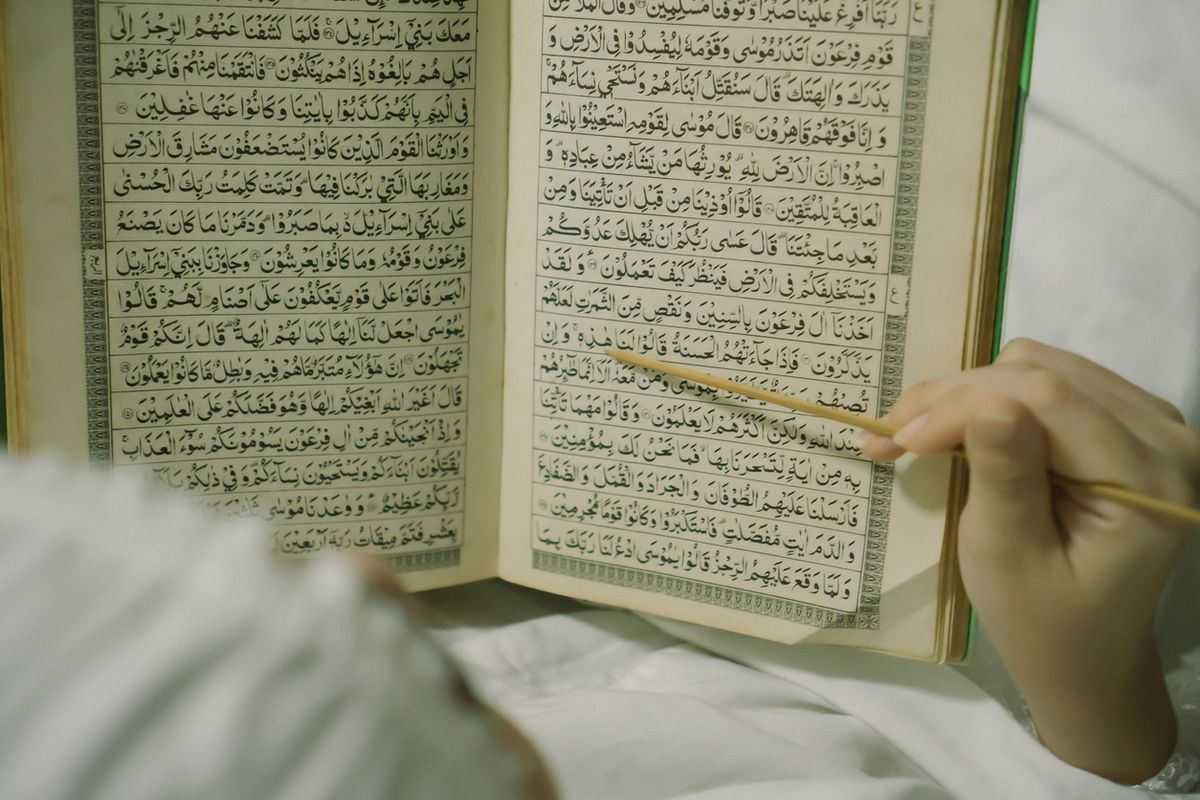 رَبَّنَا أَفْرِغْ عَلَيْنَا صَبْرًا وَّتَوَفَّنَا مُسْلِمِيْنَ ۝ وَقَالَ الْمَلَاُ مِنْ
قَوْمِ فِرْعَوْنَ اَتَذَرُ مُوْسٰى وَقَوْمَهٗ لِيُفْسِدُوْا فِى الْاَرْضِ وَ
يَذَرَكَ وَاٰلِهَتَكَ ۗ قَالَ سَنُقَتِّلُ اَبْنَآءَهُمْ وَنَسْتَحْيٖ نِسَآءَهُمْ ۚ
وَاِنَّا فَوْقَهُمْ قَاهِرُوْنَ ۝ قَالَ مُوْسٰى لِقَوْمِهِ اسْتَعِيْنُوْا بِاللّٰهِ وَ
اصْبِرُوْا ۚ اِنَّ الْاَرْضَ لِلّٰهِ ۙ يُوْرِثُهَا مَنْ يَّشَآءُ مِنْ عِبَادِهٖ ۗ وَ
الْعَاقِبَةُ لِلْمُتَّقِيْنَ ۝ قَالُوْٓا اُوْذِيْنَا مِنْ قَبْلِ اَنْ تَأْتِيَنَا وَمِنْ
بَعْدِ مَا جِئْتَنَا ۗ قَالَ عَسٰى رَبُّكُمْ اَنْ يُّهْلِكَ عَدُوَّكُمْ
وَيَسْتَخْلِفَكُمْ فِى الْاَرْضِ فَيَنْظُرَ كَيْفَ تَعْمَلُوْنَ ۝ وَلَقَدْ
اَخَذْنَآ اٰلَ فِرْعَوْنَ بِالسِّنِيْنَ وَنَقْصٍ مِّنَ الثَّمَرٰتِ لَعَلَّهُمْ
يَذَّكَّرُوْنَ ۝ فَاِذَا جَآءَتْهُمُ الْحَسَنَةُ قَالُوْا لَنَا هٰذِهٖ ۚ وَاِنْ
تُصِبْهُمْ بِمُوْسٰى وَمَنْ مَّعَهٗ ۗ اَلَآ اِنَّمَا طٰٓئِرُهُمْ
عِنْدَ اللّٰهِ وَلٰكِنَّ اَكْثَرَهُمْ لَا يَعْلَمُوْنَ ۝ وَقَالُوْا مَهْمَا تَأْتِنَا
بِهٖ مِنْ اٰيَةٍ لِّتَسْحَرَنَا بِهَا ۙ فَمَا نَحْنُ لَكَ بِمُؤْمِنِيْنَ ۝
فَاَرْسَلْنَا عَلَيْهِمُ الطُّوْفَانَ وَالْجَرَادَ وَالْقُمَّلَ وَالضَّفَادِعَ
وَالدَّمَ اٰيٰتٍ مُّفَصَّلٰتٍ ۗ فَاسْتَكْبَرُوْا وَكَانُوْا قَوْمًا مُّجْرِمِيْنَ ۝
وَلَمَّا وَقَعَ عَلَيْهِمُ الرِّجْزُ قَالُوْا يٰمُوْسَى ادْعُ لَنَا رَبَّكَ بِمَا
مَعَكَ بَنِيْٓ اِسْرَآءِيْلَ ۝ فَلَمَّا كَشَفْنَا عَنْهُمُ الرِّجْزَ اِلٰٓى
اَجَلٍ هُمْ بَالِغُوْهُ اِذَا هُمْ يَنْكُثُوْنَ ۝ فَانْتَقَمْنَا مِنْهُمْ فَاَغْرَقْنٰهُمْ
فِى الْيَمِّ بِاَنَّهُمْ كَذَّبُوْا بِاٰيٰتِنَا وَكَانُوْا عَنْهَا غٰفِلِيْنَ ۝
وَاَوْرَثْنَا الْقَوْمَ الَّذِيْنَ كَانُوْا يُسْتَضْعَفُوْنَ مَشَارِقَ الْاَرْضِ
وَمَغَارِبَهَا الَّتِيْ بٰرَكْنَا فِيْهَا ۗ وَتَمَّتْ كَلِمَتُ رَبِّكَ الْحُسْنٰى
عَلٰى بَنِيْٓ اِسْرَآءِيْلَ ۙ بِمَا صَبَرُوْا ۗ وَدَمَّرْنَا مَا كَانَ يَصْنَعُ
فِرْعَوْنُ وَقَوْمُهٗ وَمَا كَانُوْا يَعْرِشُوْنَ ۝ وَجَاوَزْنَا بِبَنِيْٓ اِسْرَآءِيْلَ
الْبَحْرَ فَاَتَوْا عَلٰى قَوْمٍ يَّعْكُفُوْنَ عَلٰٓى اَصْنَامٍ لَّهُمْ ۚ قَالُوْا
يٰمُوْسَى اجْعَلْ لَّنَآ اِلٰهًا كَمَا لَهُمْ اٰلِهَةٌ ۗ قَالَ اِنَّكُمْ قَوْمٌ
تَجْهَلُوْنَ ۝ اِنَّ هٰٓؤُلَآءِ مُتَبَّرٌ مَّا هُمْ فِيْهِ وَبٰطِلٌ مَّا كَانُوْا يَعْمَلُوْنَ ۝
قَالَ اَغَيْرَ اللّٰهِ اَبْغِيْكُمْ اِلٰهًا وَّهُوَ فَضَّلَكُمْ عَلَى الْعٰلَمِيْنَ ۝
وَاِذْ اَنْجَيْنٰكُمْ مِّنْ اٰلِ فِرْعَوْنَ يَسُوْمُوْنَكُمْ سُوْٓءَ الْعَذَابِ ۚ
يُقَتِّلُوْنَ اَبْنَآءَكُمْ وَيَسْتَحْيُوْنَ نِسَآءَكُمْ ۗ وَفِيْ ذٰلِكُمْ
رَّبِّكُمْ عَظِيْمٌ ۝ وَوٰعَدْنَا مُوْسٰى
بِعَشْرٍ فَتَمَّ مِيْقَاتُ رَبِّهٖٓ اَرْبَعِيْنَ